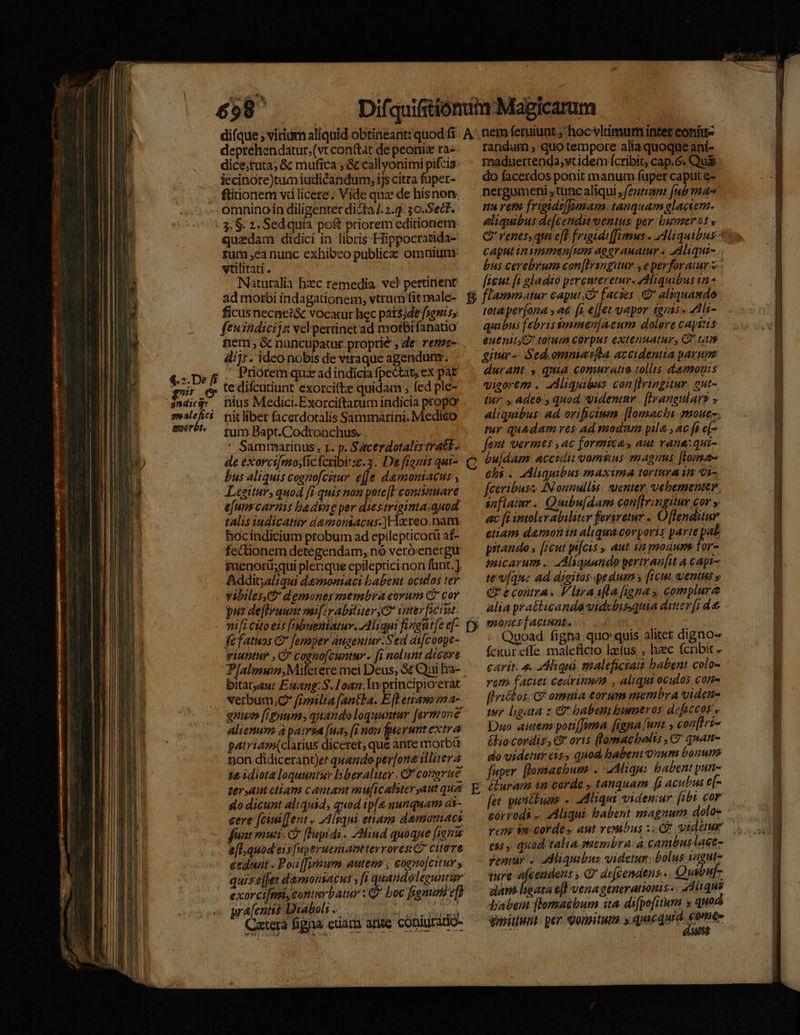 698 Disquisitionum Magicarum
disque, vitium aliquid obtineant: quod si
deprehendatur, (vt constat de peoniæ ra-
dice, ruta, & musica, & callyonimi piscis
iecinore) tum iudicandum, ijs citra super-
stitionem vti licere. Vide quæ de his non
omnino in diligenter dicta l. 2. q. 30. Sect.
3. §. 2. Sed quia post priorem editionem
quædam didici in libris Hippocratida-
rum, ea nunc exhibeo publicæ omnium
vtilitati.
Naturalia hæc remedia vel pertinent
ad morbi indagationem, vtrum sit male-
ficus necne? & vocatur hęc pars, de signis,
seu indicijs: vel pertinet ad morbi sanatio
nem, & nuncupatur proprie, de reme-
dijs. ideo nobis de vtraque agendum.
§. 2. De si
gnis &
indicijs
malefici
morbi.
Priorem quæ ad indicia spectat, ex par
te discutiunt exorcistæ quidam, sed ple-
nius Medici. Exorcistarum indicia propo
nit liber sacerdotalis Sammarini. Medico
rum Bapt. Codronchus.
Sammarinus, 1. p. Sacerdotalis tract.
de exorcismo, sic scribit: c. 3. De signis qui-
bus aliquis cognoscitur esse dæmoniacus,
Legitur, quod si quis non potest continuare
esum carnis hædinæ per dies triginta, quod
talis iudicatur dæmoniacus.] Hæreo. nam
hoc indicium probum ad epilepticorū af-
fectionem detegendam, nō verò energu
menorū; qui plerique epileptici non sunt.]
Addit; aliqui dæmoniaci habent oculos ter
ribiles, & dæmones membra eorum & cor
pus destruunt miserabiliter, & interficiunt
nisi cito eis subueniatur. Aliqui fingūt se es-
se fatuos & semper augentur. Sed discoope-
riuntur, & cognoscuntur. si nolunt dicere
Psalmum, Miserere mei Deus, & Qui ha-
bitat, aut Euang. S. Ioan. In principio erat
verbum, & similia sancta. Est etiam ma-
gnum signum, quando loquuntur sermone
alienum a patria sua, si non fuerunt extra
patriam (clarius diceret, que ante morbū
non didicerant) et quando personæ illitera
tæ idiotæ loquuntur liberaliter, & congrue
ter, aut etiam cantant musicaliter, aut quā
do dicunt aliquid, quod ipsæ nunquam di-
cere sciuissent. Aliqui etiam dæmoniaci
fiunt muti & stupidi. Aliud quoque signū
est, quod eis superueniant terrores: & citore
cedunt. Potissimum autem, cognoscitur,
quis esset dæmoniacus, si quando leguntur
exorcismi, conturbatur: & hoc signum est
præsentis Diaboli.
Cætera signa etiam ante coniuratio-
A nem seruiunt, hoc vltimum inter coniu-
randum, quo tempore alia quoque ani-
maduertenda, vt idem scribit, cap. 6. Quā
do sacerdos ponit manum super caput e-
nergumeni, tunc aliqui, sentiunt sub ma-
nu rem frigidissimam tanquam glaciem.
aliquibus descendit ventus per humeros,
& renes, qui est frigidissimus. Aliquibus
caput in immensum aggrauatur. Aliqui-
bus cerebrum constringitur, & perforatur
sicut si gladio percuteretur. Aliquibus in-
B flammatur caput, & facies, & aliquando
tota persona, ac si esset vapor ignis. Ali-
quibus febris immensa cum dolore capitis
euenit, & totum corpus extenuatur, & tan
gitur. Sed omnia ista accidentia parum
durant, quia coniuratio tollis dæmonis
vigorem. Aliquibus constringitur gut-
tur, adeo, quod videntur strangulari,
aliquibus ad orificium stomachi moue-
tur quædam res ad modum pilæ, ac si es-
sent vermes, ac formicæ, aut ranæ: qui-
C busdam accedit vomitus magnus stoma-
chi. Aliquibus maxima tortura in vi-
sceribus. Nonnullis venter vehementer
inflatur. Quibusdam constringitur cor,
ac si intolerabiliter feriretur. Ostenditur
etiam dæmon in aliqua corporis parte pal
pitando, sicut piscis, aut in modum for-
micarum. Aliquando pertransit a capi-
te vsque ad digitos pedum, sicut ventus,
& e contra. Vltra ista signa, complura
alia practicanda videbis, quia diuersi dæ-
D mones faciunt.
Quoad signa quo quis aliter digno-
scitur esse maleficio læsus, hæc scribit.
carit. 4. Aliqui maleficiati habent colo-
rem faciei cedrinum, aliqui oculos con-
strictos. & omnia eorum membra viden-
tur ligata: & habent humeros defessos.
Duo autem potissima signa sunt, constri-
ctio cordis, & oris stomachalis, & quan-
do videtur eis, quod habent vnum bonum
super stomachum. Aliqui habent pun-
E cturam in corde, tanquam si acubus es-
set punctum. Aliqui videntur sibi cor
corrodi. Aliqui habent magnum dolo-
rem in corde, aut renibus: & videtur
eis, quod talia membra a canibus lace-
rentur. Aliquibus videtur bolus in gut-
ture ascendens, & descendens. Quibus-
dam ligata est vena generationis. Aliqui
habent stomachum ita dispositum, quod
emittunt per vomitum, quicquid come-
dunt